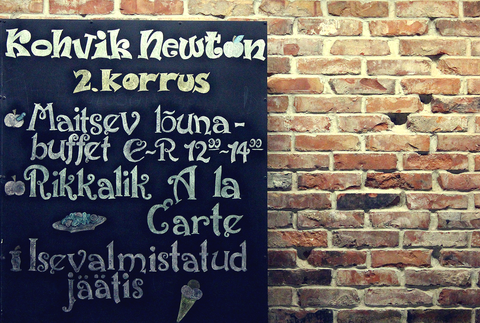 Kohvik Newton
2. korrus
Maitsev lõuna-
buffet E-R 12⁰⁰-14⁰⁰
Rikkalik A la
Carte
Isevalmistatud
jäätis